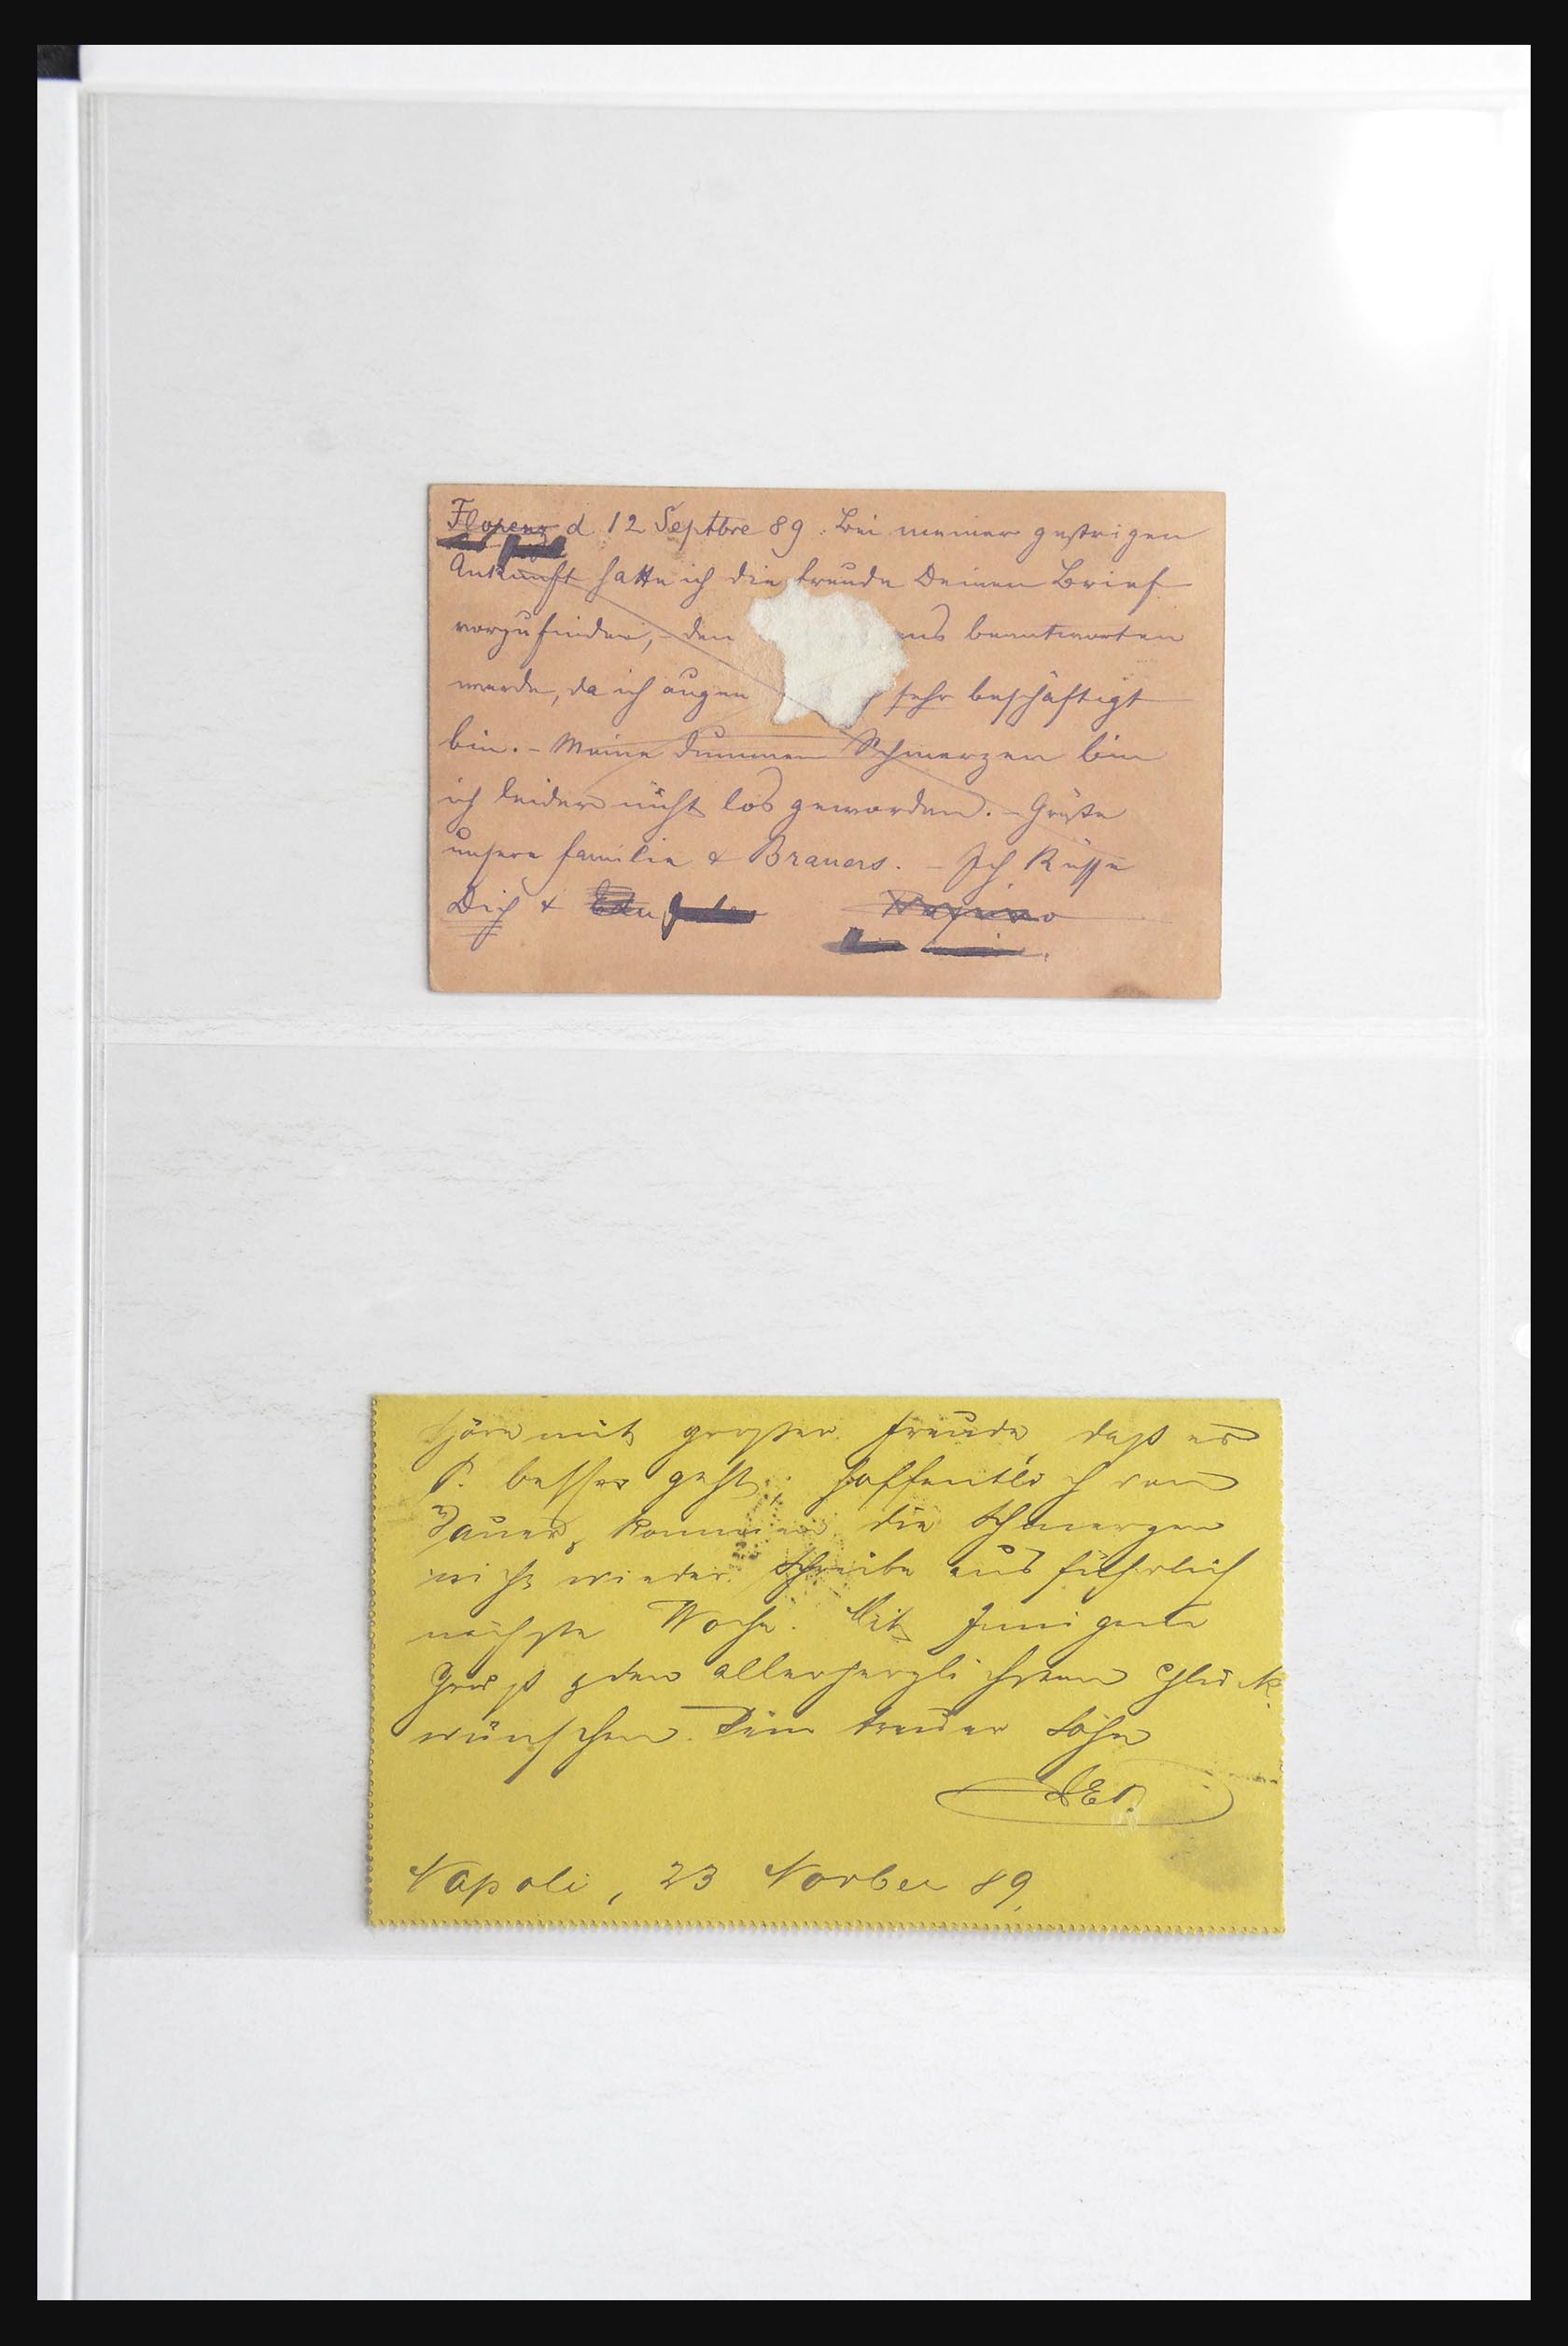 Florenz d 12 Septbre 89. Bei meiner gestrigen
Ankunft hatte ich die Freude Deinen Brief
vorzufinden, – den ens beantworten
werde, da ich augen sehr beschäftigt
bin. – Meine dummen Schmerzen bin
ich leider nicht los geworden. – Grüße
unsere Familie & Brauers. – Ich Küsse
Dich &
Höre mit großer Freude, daß es
P. besser geht, hoffentlich von
Dauer, kommen die Schmerzen
nicht wieder. Schreibe ausführlich
nächste Woche. Mit innigem
Gruß & den allerherzlichsten Glück
wünschen. Dein treuer Sohn
Napoli, 23 Novber 89.